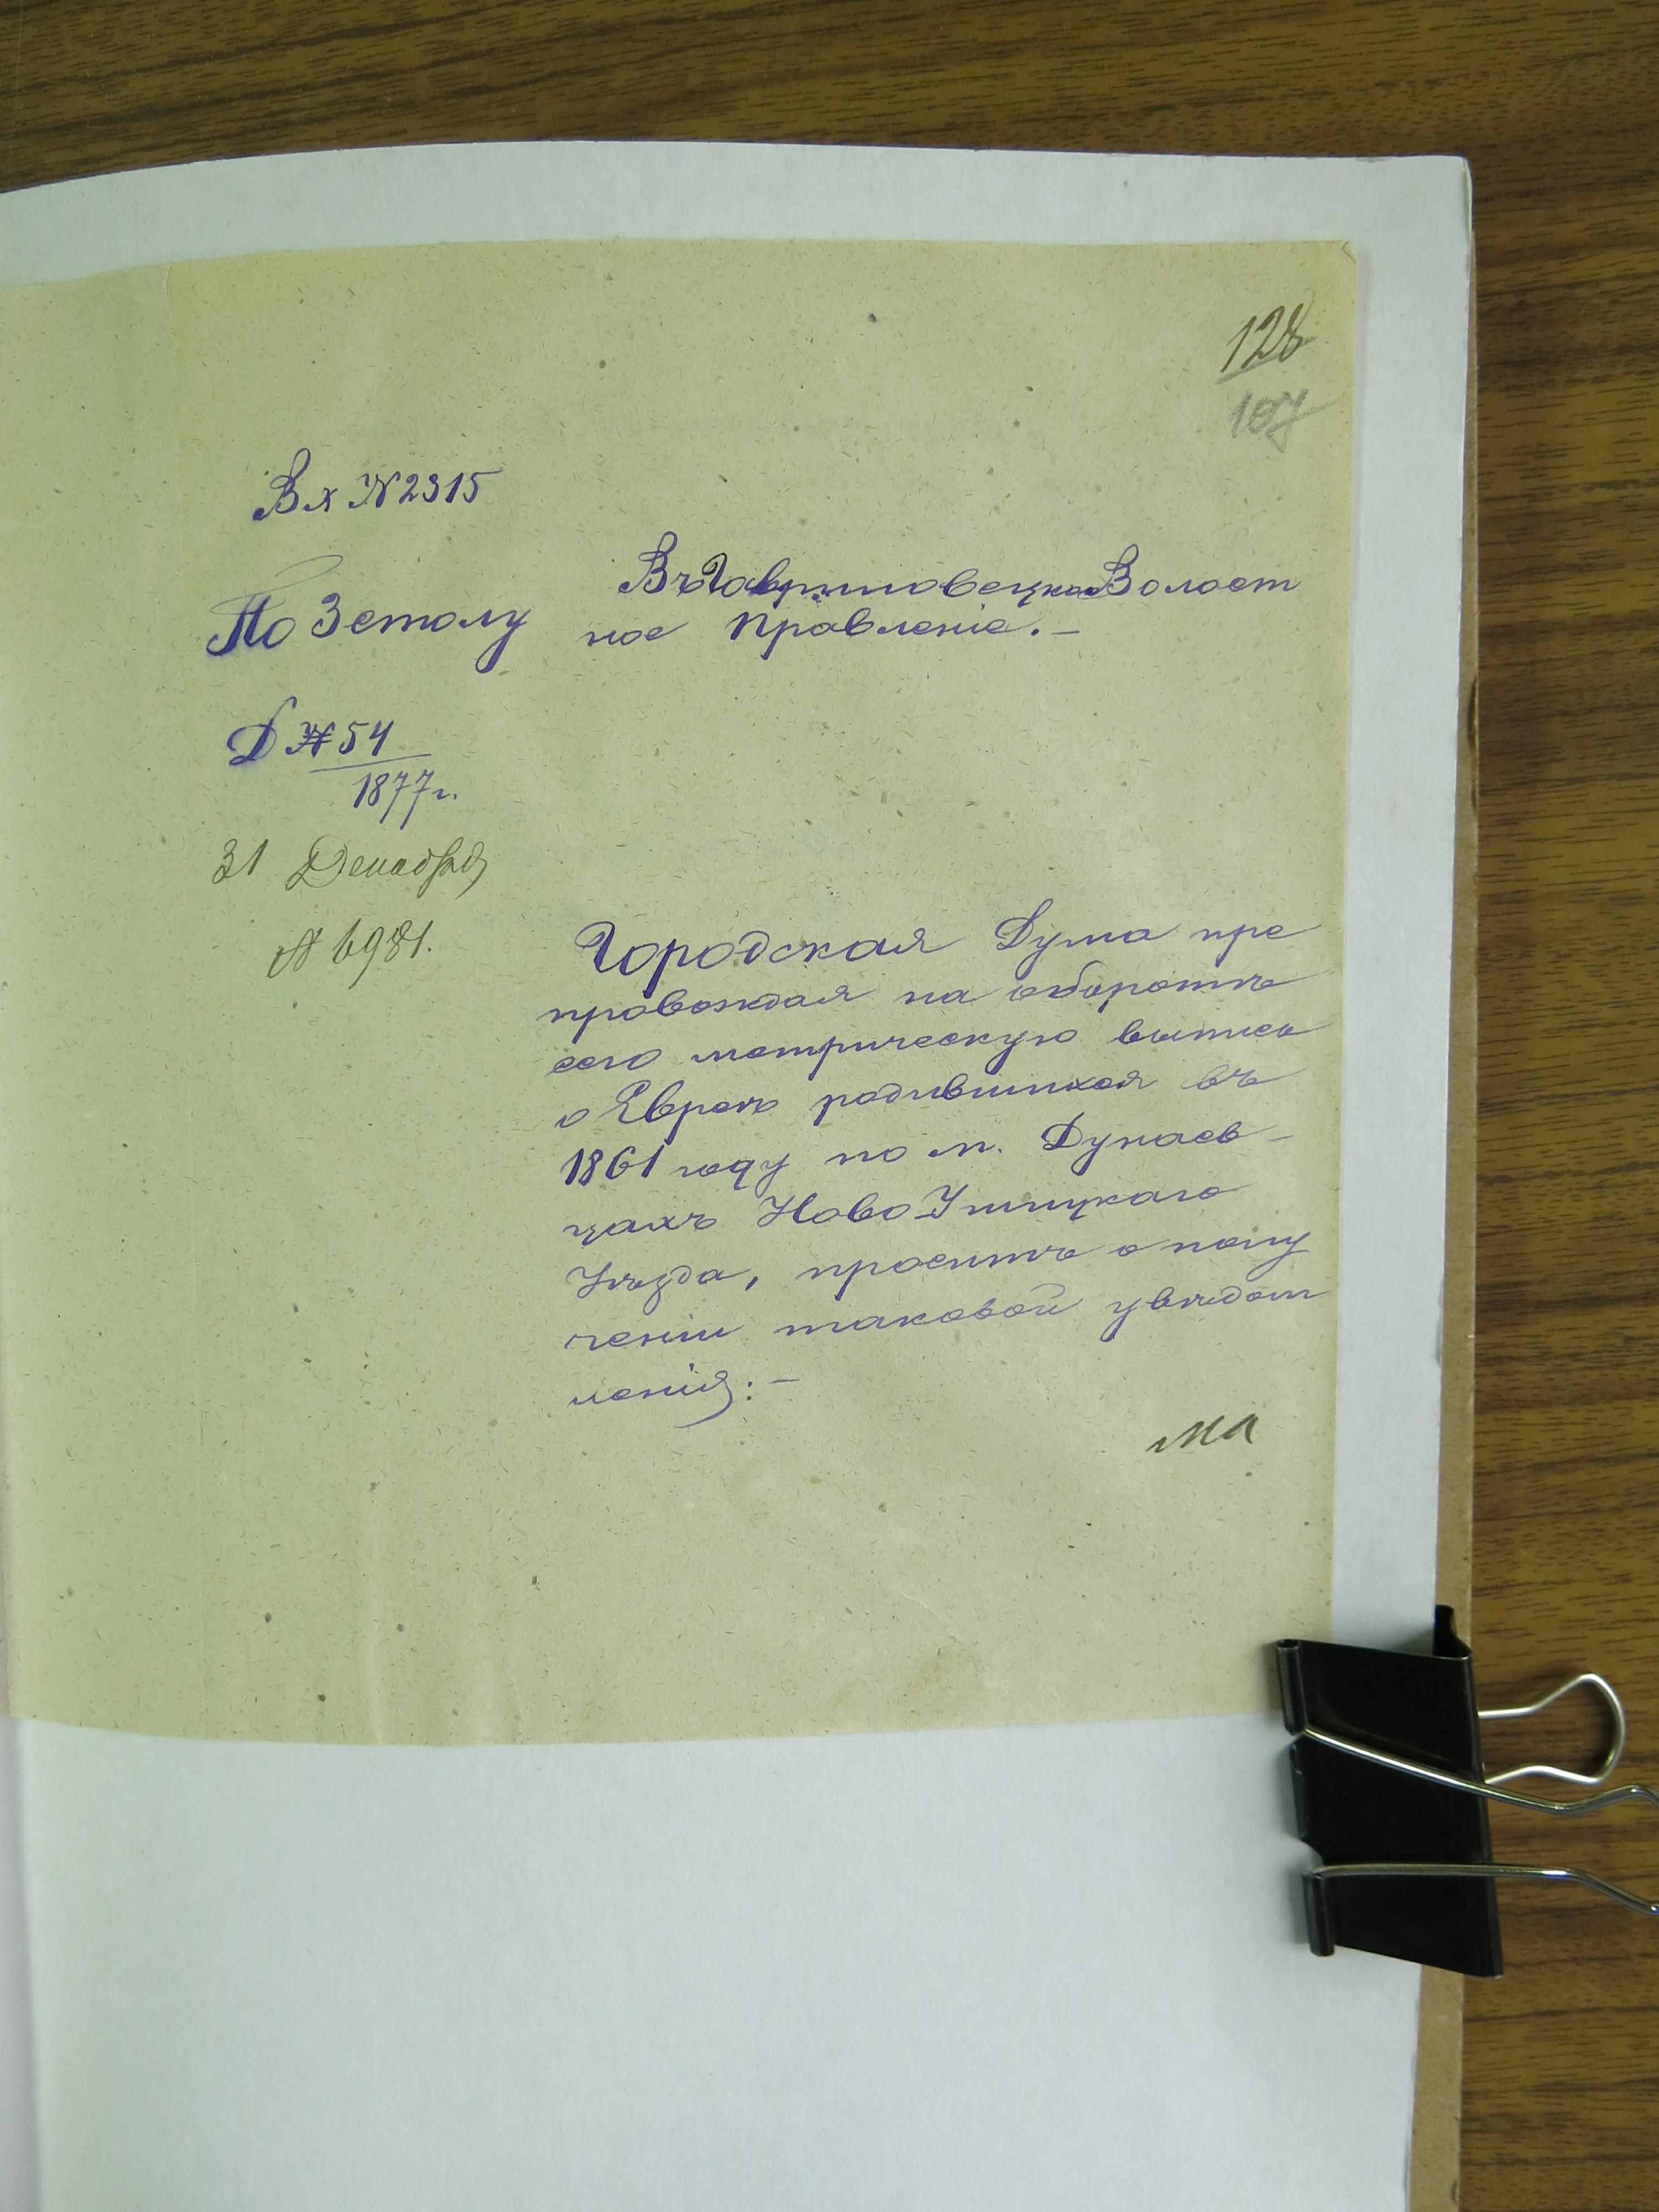 128
107
Вх № 2315
Въ Гавришовецкое Волост
По 3 столу
ное Правленіе. —
Д № 54
1877 г.
31 Декабря
№ 6981.
Городская Дума пре
провождая на оборотѣ
сего метрическую выпись
о Евреѣ родившихся въ
1861 году по м. Дунаев-
цахъ Ново-Ушицкаго
Уѣзда, проситъ о полу
ченіи таковой увѣдом
ленія: —